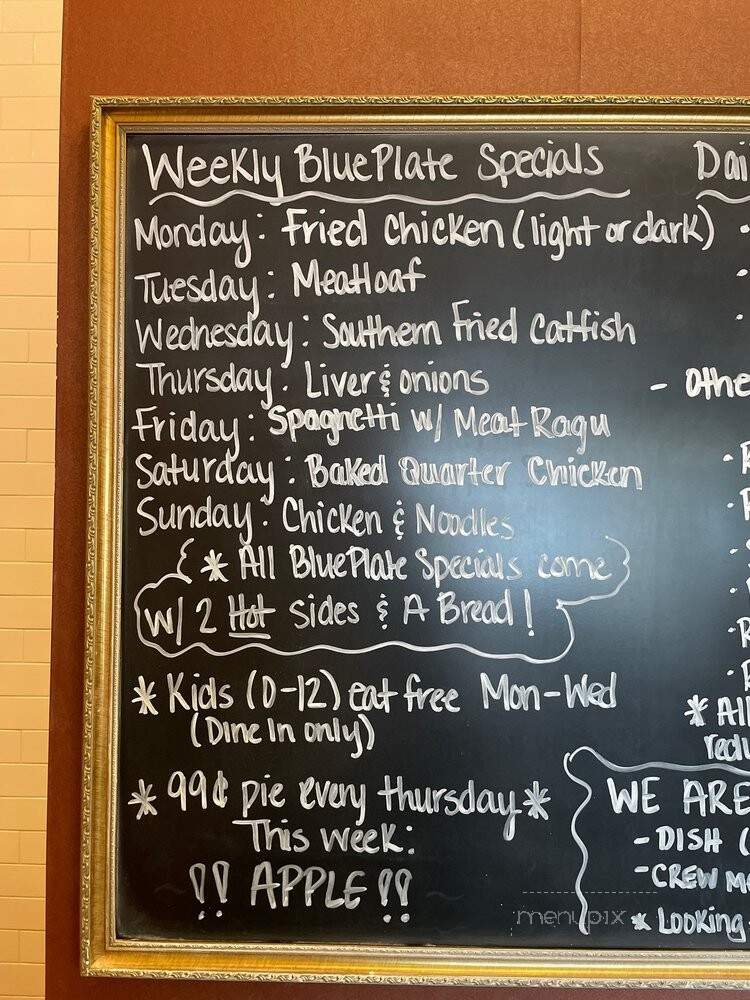 Weekly BluePlate Specials
Monday: Fried Chicken (light or dark)
Tuesday: Meatloaf
Wednesday: Southern Fried Catfish
Thursday: Liver & onions
Friday: Spaghetti w/ Meat Ragu
Saturday: Baked Quarter Chicken
Sunday: Chicken & Noodles
* All BluePlate Specials come
w/ 2 Hot sides & A Bread!
* Kids (0-12) eat free Mon-Wed
(Dine In only)
* 99¢ pie every thursday *
This week:
!! APPLE !!
Dai
- Othe
* All
redu
WE ARE
- DISH (
- CREW Me
* Looking
menupix